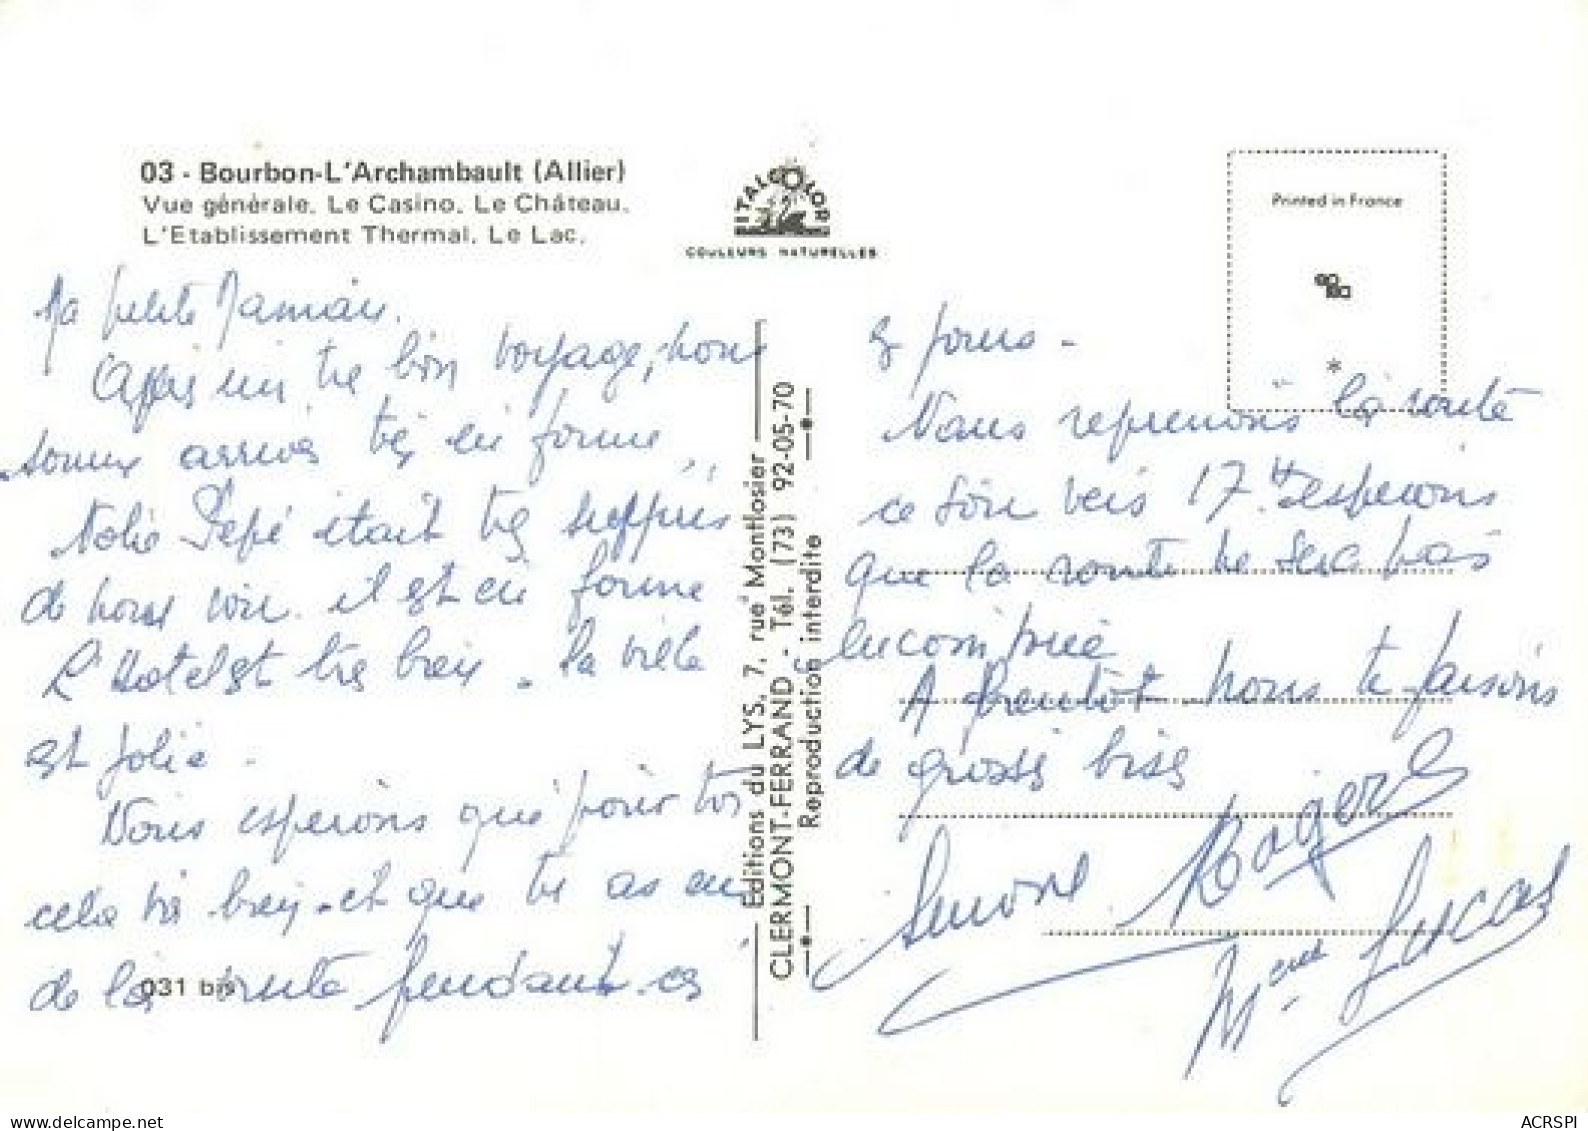 03 - Bourbon-L'Archambault (Allier)
Vue générale. Le Casino. Le Château.
L'Etablissement Thermal. Le Lac.
ITALCOLOR
COULEURS NATURELLES
Printed in France
*
Ma petite Maman.
Après un tre bon voyage, nous
somme arrivés très en forme
Notre Pépé était très surpris
de nous voir. il est en forme
L'Hotel est tres bien - la ville
est jolie.
Nous esperons que pour toi
cela va bien. et que tu as eu
de la route pendant ces
031 bis
Editions du LYS, 7, rue Montlosier
CLERMONT-FERRAND - Tél. (73) 92-05-70
Reproduction interdite
jours -
Nous reprenons la route
ce soir vers 17 H esperons
que la route ne sera pas
encombrée
A bientôt nous te faisons
de grosses bises
Simone Roger
Lucas
ACRSPI